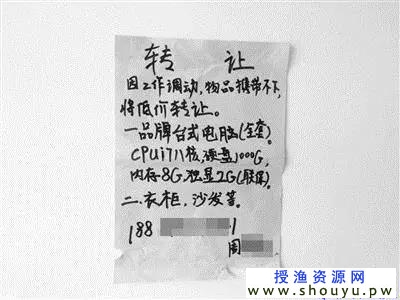 转 让
因工作调动,物品携带不下,
将低价转让。
一品牌台式电脑(全套)。
CPUi7八核,硬盘1000G,
内存8G,独显2G(联保)。
二、衣柜,沙发等。
188 1
周
授渔资源网
www.shouyu.pw